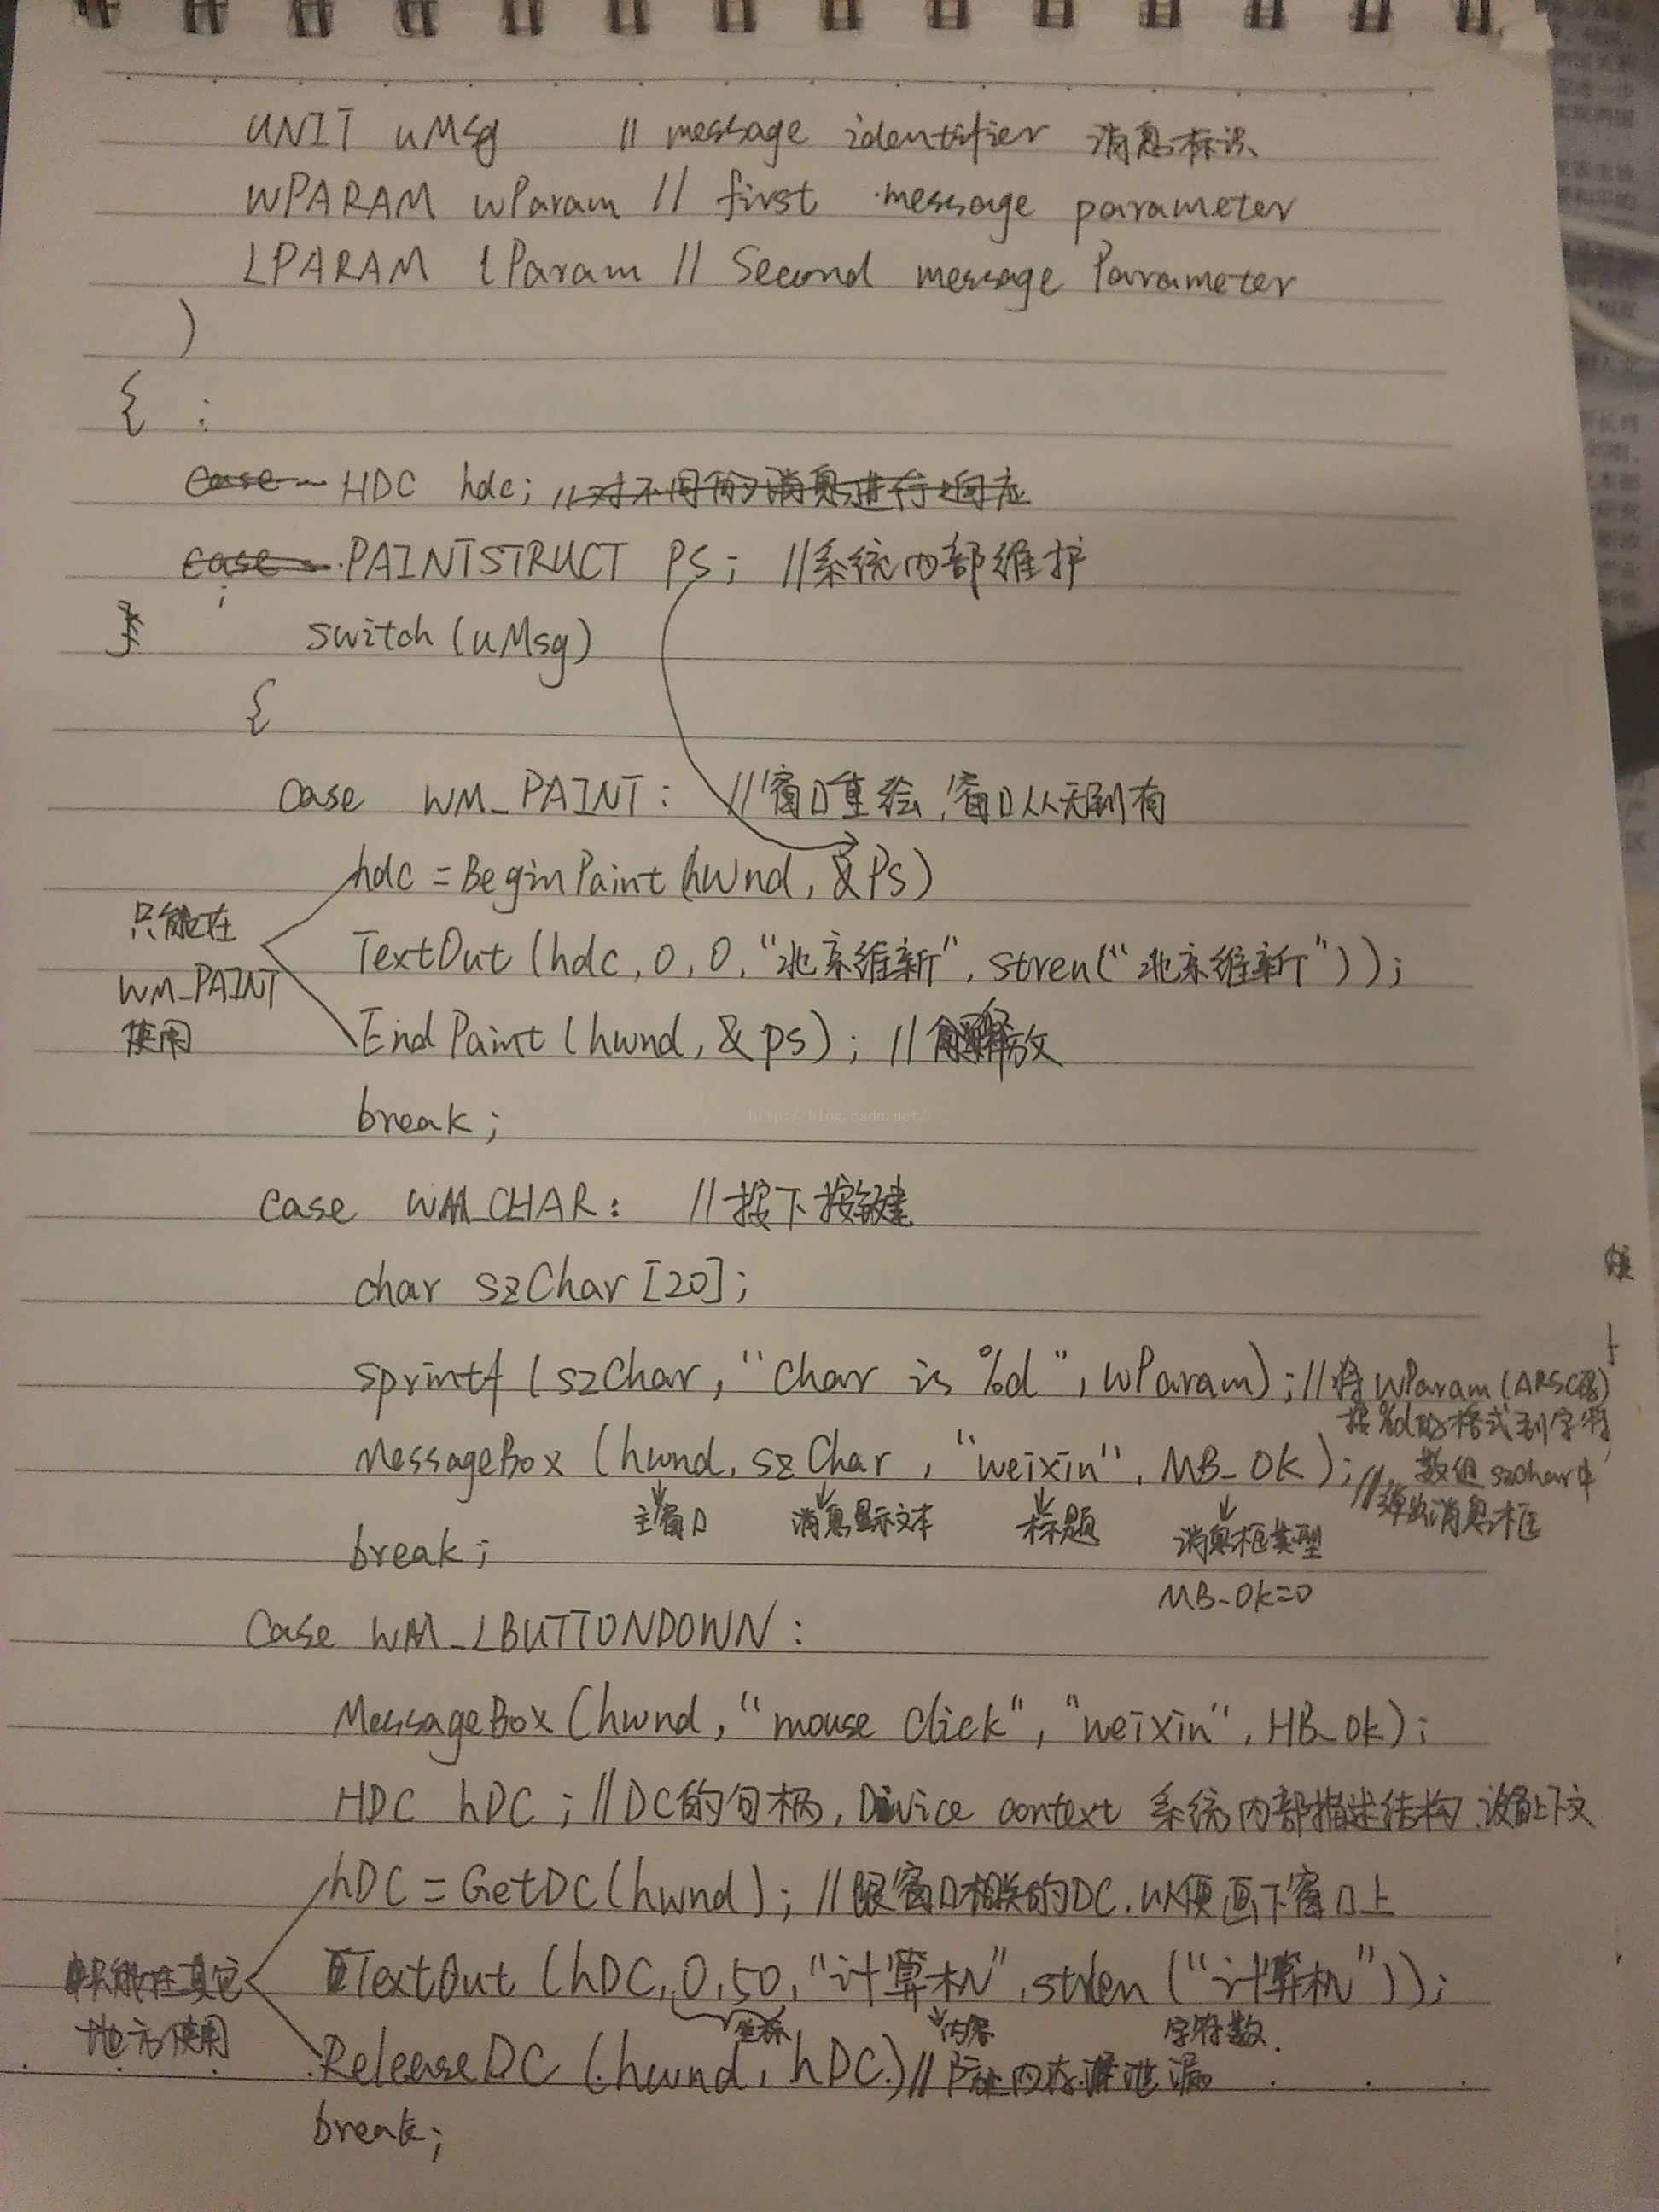 UNIT uMsg // message identifier 消息标识
WPARAM wParam // first message parameter
LPARAM lParam // Second message Parameter
)
{ :
case HDC hdc; //对不同的消息进行响应
case PAINTSTRUCT PS; //系统内部维护
;
} switch (uMsg)
{
Case WM_PAINT: //窗口重绘,窗口从无到有
hdc = BeginPaint (hWnd, &PS)
只能在
WM_PAINT
使用
TextOut (hdc, 0, 0, "北京维新", stren("北京维新"));
EndPaint (hwnd, &ps); //释放
break;
http://blog.csdn.net/
Case WM_CHAR: //按下按键
char szChar [20];
sprintf (szChar, "Char is %d", wParam); //将wParam(ARSC码)
按%d的格式到字符
数组szChar中
MessageBox (hwnd, szChar, "weixin", MB_OK); //弹出消息框
主窗口 消息显示文本 标题 消息框类型
MB_OK=0
break;
Case WM_LBUTTONDOWN:
MessageBox (hwnd, "mouse Click", "weixin", HB_Ok);
HDC hDC; //DC的句柄, Divice context 系统内部描述结构.设备上下文
hDC = GetDC(hwnd); //跟窗口相关的DC.以便画下窗口上
只能在其它
地方使用
TextOut (hDC, 0,50, "计算机", strlen ("计算机"));
坐标 内容 字符数.
ReleaseDC (hwnd, hDC) //防止内存泄漏
break;